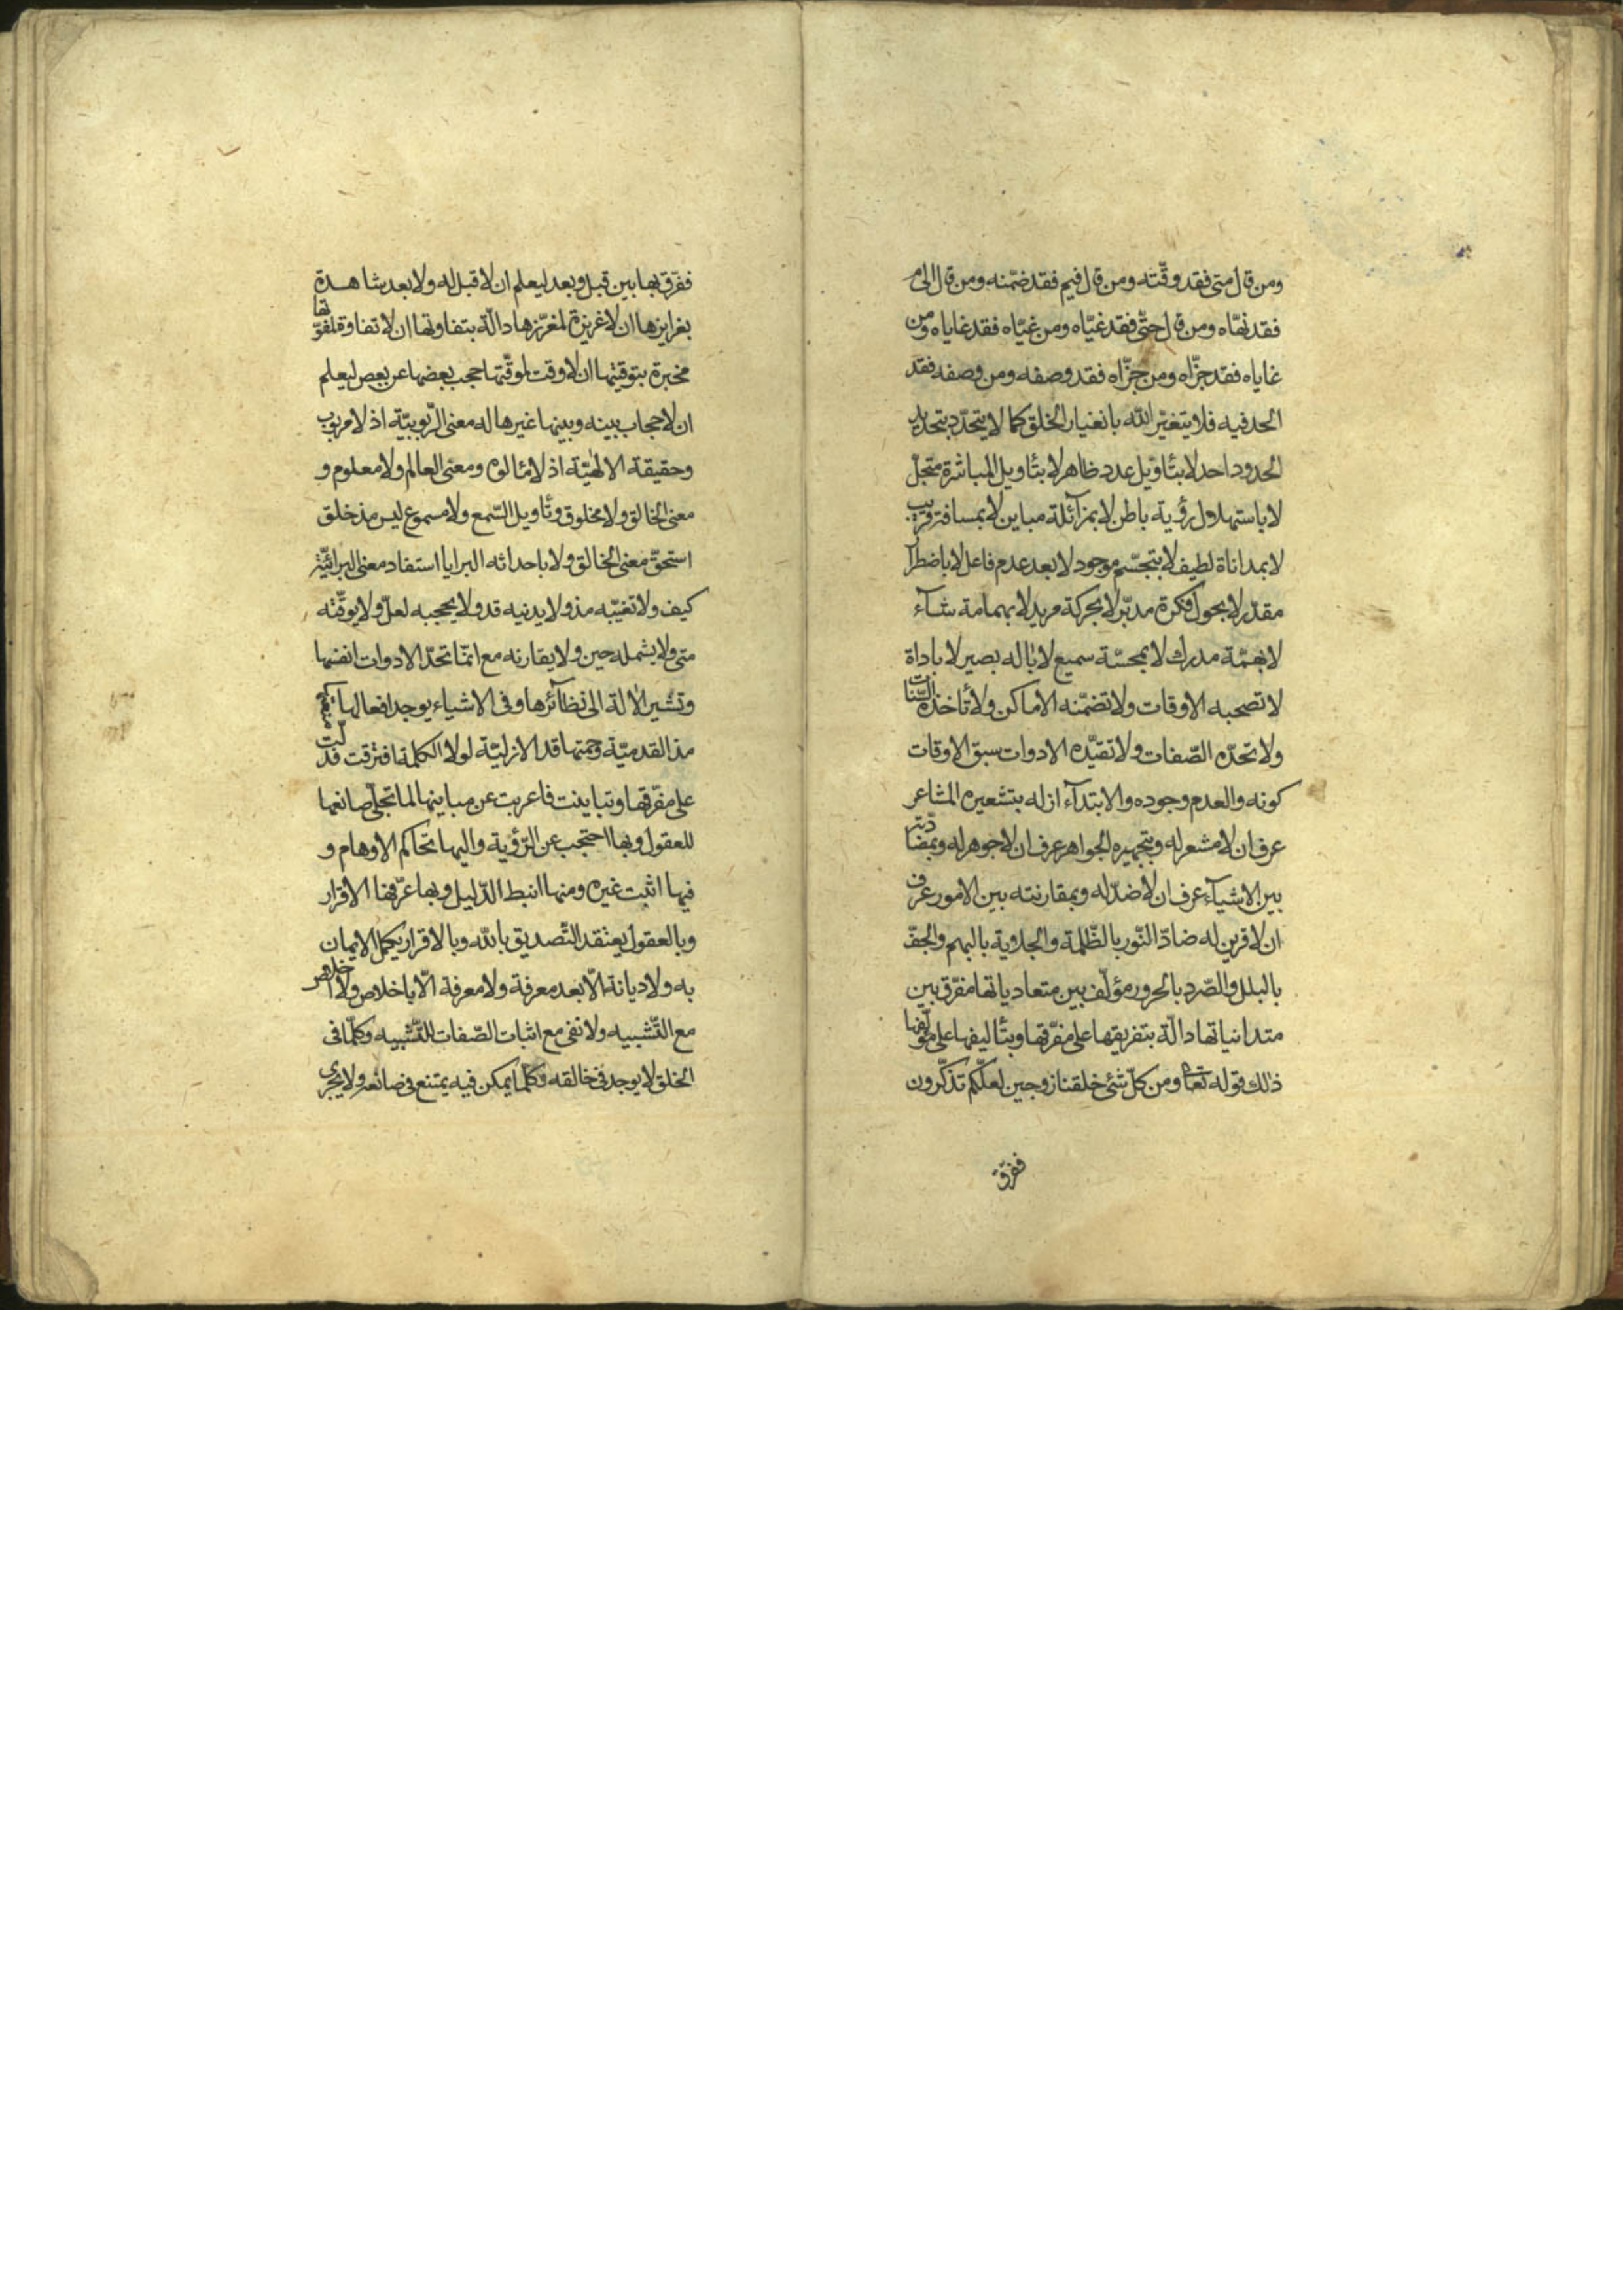 ومن قال متى فقد وقّته ومن قال فيم فقد ضمّنه ومن قال الى م
فقد نهّاه ومن قال حتّى فقد غيّاه ومن غيّاه فقد غاياه ومن
غاياه فقد جزّاه ومن جزّاه فقد وصفه ومن وصفه فقد
الحد فيه فلا يتغيّر الله بانغيار الخلق كما لا يتحدّد بتحديد
الحدود احد لا بتأويل عدد ظاهر لا بتأويل المباشرة متجلّ
لا باستهلال رؤية باطن لا بمزائلة مباين لا بمسافة قريب
لا بمداناة لطيف لا بتجسّم موجود لا بعد عدم فاعل لا باضطرآ
مقدّر لا بحول فكرة مدبّر لا بحركة مريد لا بهمامة شآء
لا بهمّة مدرك لا بمحسّة سميع لا بآلة بصير لا باداة
لا تصحبه الاوقات ولا تضمّنه الاماكن ولا تأخذه السّنات
ولا تحدّه الصّفات ولا تقيّده الادوات سبق الاوقات
كونه والعدم وجوده والابتدآء ازله بتشعيره المشاعر
عرف ان لا مشعر له وبتجهيره الجواهر عرف ان لا جوهر له وبمضادّته
بين الاشيآء عرف ان لا ضدّ له وبمقارنته بين الامور عرف
ان لا قرين له ضادّ النّور بالظّلمة والجلاية بالبهم والجفّ
بالبلل والصّرد بالحرور مؤلّف بين متعادياتها مفرّق بين
متدانياتها دالّة بتفريقها على مفرّقها وبتأليفها على مؤلّفها
ذلك قوله تعالى ومن كلّ شئ خلقنا زوجين لعلّكم تذكّرون
ففرّق
ففرّق بها بين قبل وبعد ليعلم ان لا قبل له ولا بعد شاهدة
بغرايزها ان لا غريزة لمغرّزها دالّة بتفاوتها ان لا تفاوة لمفوّتها
مخبرة بتوقيتها ان لا وقت لموقّتها حجب بعضها عن بعض ليعلم
ان لا حجاب بينه وبينها غيرها له معنى الرّبوبيّة اذ لا مربوب
وحقيقة الالهيّة اذ لا مئالوه ومعنى العالم ولا معلوم و
معنى الخالق ولا مخلوق وتأويل السّمع ولا مسموع ليس مذ خلق
استحقّ معنى الخالق ولا باحداثه البرايا استفاد معنى البرائيّة
كيف ولا تغيّبه مذ ولا يدنيه قد ولا يحجبه لعلّ ولا يوقّته
متى ولا يشمله حين ولا يقارنه مع انّما تحدّ الادوات انفسها
وتشير الآلة الى نظآئرها وفى الاشياء يوجد افعالها
مذ القدميّة وحمتها قد الازليّة لولا الكلمة افترقت فدلّت
على مفرّقها وتباينت فاعربت عن مباينها لما تجلّى صانعها
للعقول وبها احتجب عن الرّؤية واليها تحاكم الاوهام و
فيها اثبت غيره ومنها انبط الدّليل وبها عرّفها الاقرار
وبالعقول يعتقد التّصديق بالله وبالاقرار يكمل الايمان
به ولا ديانة الّا بعد معرفة ولا معرفة الّا باخلاص ولا اخلاص
مع التّشبيه ولا نفى مع اثبات الصّفات للتّشبيه وكلّما فى
الخلق لا يوجد فى خالقه وكلّما يمكن فيه يمتنع فى صانعه ولا يجرى